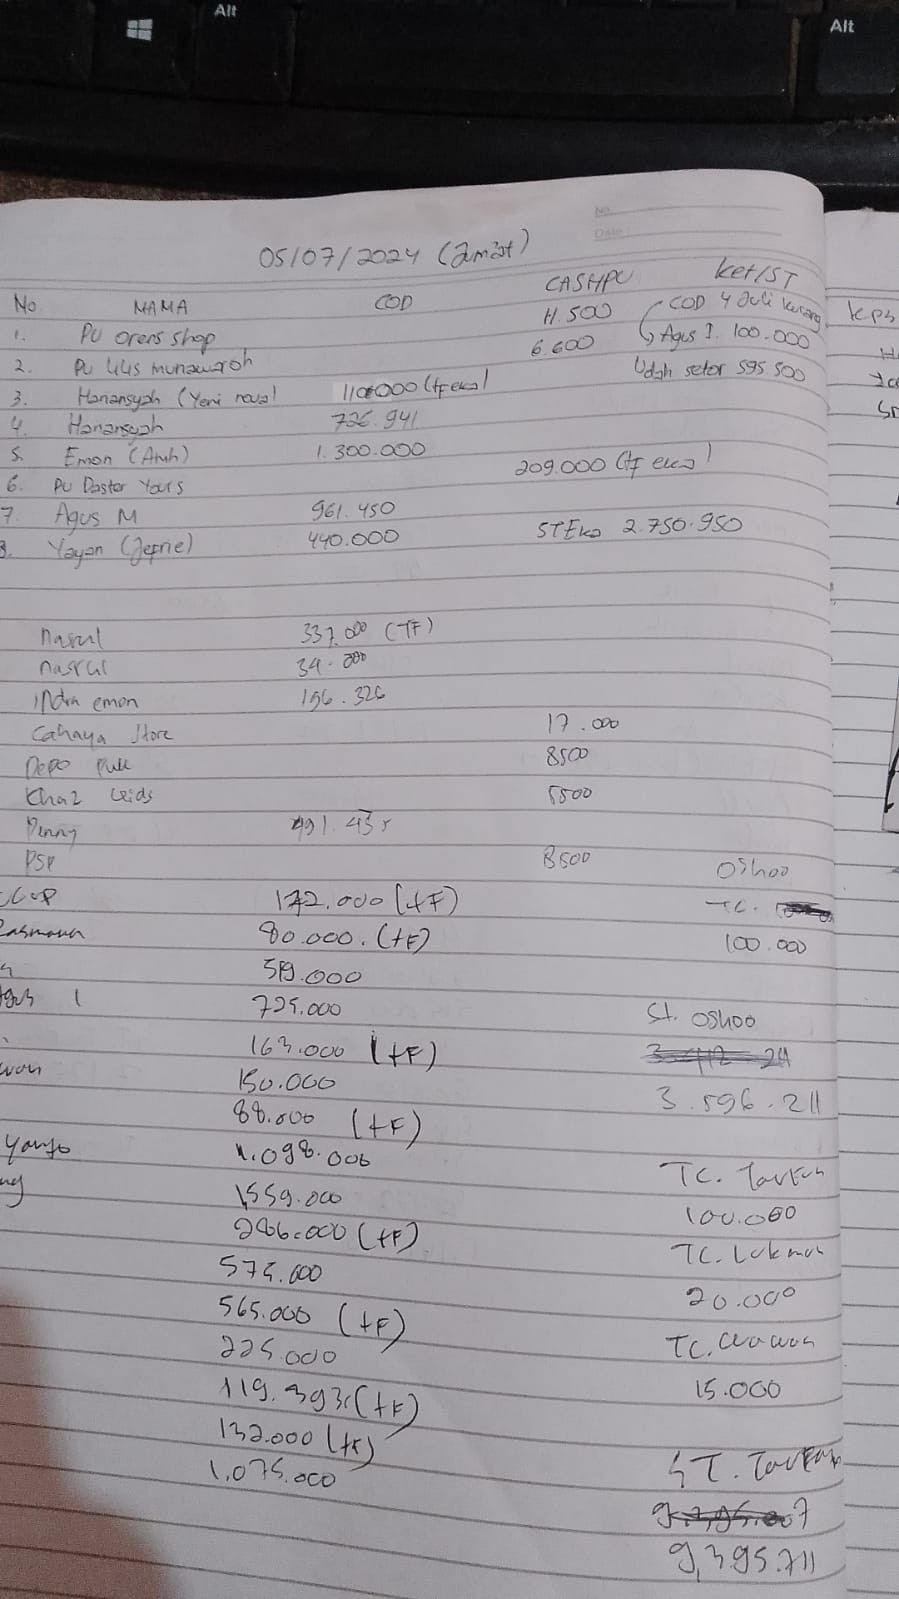 Alt
Alt
No
Date
05/07/2024 (Jum'at)
No NAMA COD CASHPU ket/ST
1. PU Orens shop 11.500 COD 4 Juli kurang
2. PU Lilis munawaroh 6.600 Agus I. 100.000
3. Hanansyah (Yeni 110.000 (tf eko) Udah setor 595 500
4. Hanansyah 726.941
5. Emon (Amh) 1.300.000
6. PU Daster Yours 209.000 (tf eko)
7. Agus M 961.450
8. Yayan (Jeprie) 440.000 ST Eko 2.750.950
Nasrul 337.000 (TF)
nasrul 34.000
indra emon 196.326
Cahaya Store 17.000
Depo 8500
Khaz 5500
Denny 491.435
PSP 8500 oShoo
172.000 (tF) TC.
Rasmawan 80.000. (tF) 100.000
519.000
1 725.000 St. OShoo
163.000 (tF)
wan 150.000 3.596.211
88.000 (tF)
yanto 1.098.000 TC.
ng 1.559.000 100.000
286.000 (tF) TC. Lukman
575.000 20.000
565.000 (tF) TC. wawan
225.000
119.393 (tF) 15.000
132.000 (tF)
1.075.000 ST.
9,395.711